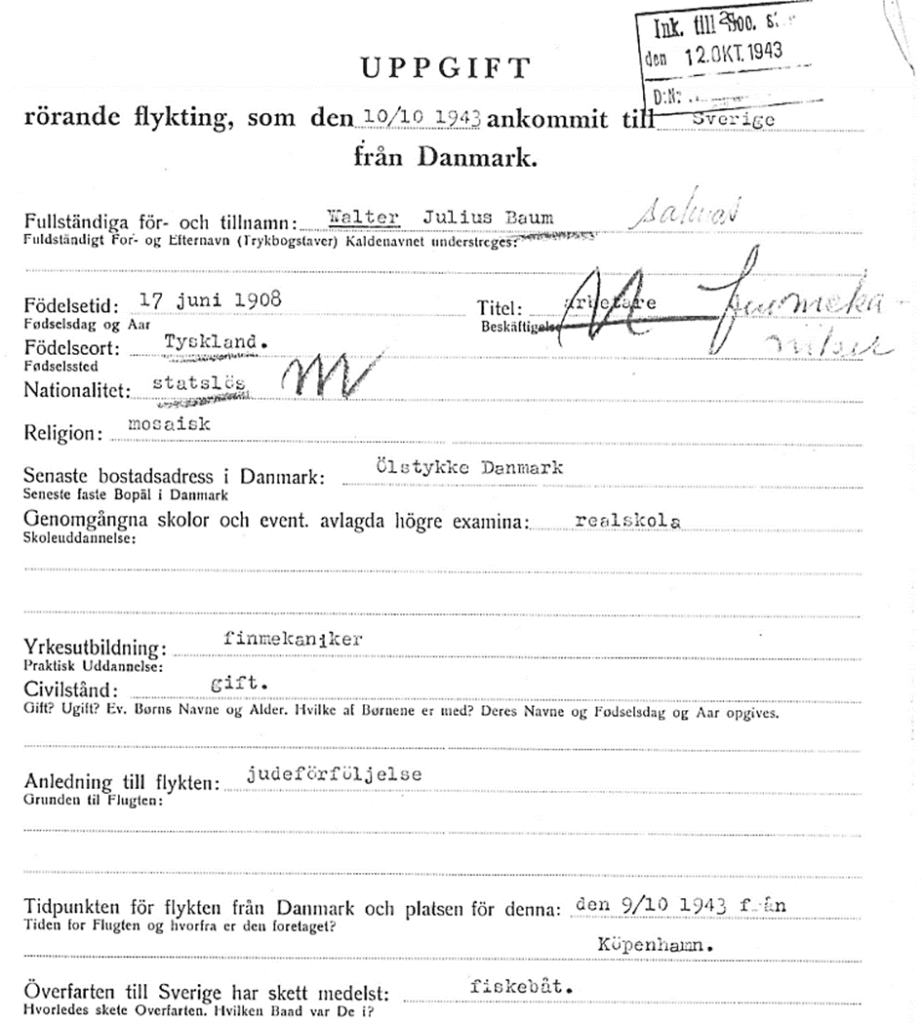 Ink. till Soc. s.
den 12.OKT.1943
D:Nr
UPPGIFT
rörande flykting, som den 10/10 1943 ankommit till Sverige
från Danmark.
Fullständiga för- och tillnamn: Walter Julius Baum saknas
Fuldständigt For- og Efternavn (Trykbogstaver) Kaldenavnet understreges:
Födelsetid: 17 juni 1908 Titel: arbetare finmeka-
Fødselsdag og Aar Beskäftigelse
niker
Födelseort: Tyskland.
Fødselssted
Nationalitet: statslös
Religion: mosaisk
Senaste bostadsadress i Danmark: Ölstykke Danmark
Seneste faste Bopäl i Danmark
Genomgångna skolor och event. avlagda högre examina: realskola
Skoleuddannelse:
Yrkesutbildning: finmekaniker
Praktisk Uddannelse:
Civilstånd: gift.
Gift? Ugift? Ev. Børns Navne og Alder. Hvilke af Børnene er med? Deres Navne og Fødselsdag og Aar opgives.
Anledning till flykten: judeförföljelse
Grunden til Flugten:
Tidpunkten för flykten från Danmark och platsen för denna: den 9/10 1943 från
Tiden for Flugten og hvorfra er den foretaget?
Köpenhamn.
Överfarten till Sverige har skett medelst: fiskebåt.
Hvorledes skete Overfarten. Hvilken Baad var De i?